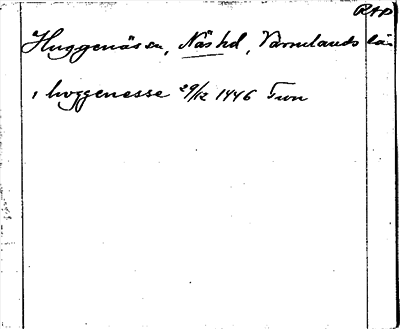 RAP
Huggenäs sn, Näs hd, Värmlands län
, hoggenesse 29/12 1446 Fron